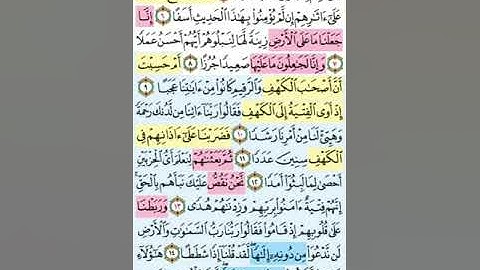 عَلَىٰٓ ءَاثَٰرِهِمْ إِن لَّمْ يُؤْمِنُوا۟ بِهَٰذَا ٱلْحَدِيثِ أَسَفًا ٦ إِنَّا
جَعَلْنَا مَا عَلَى ٱلْأَرْضِ زِينَةً لَّهَا لِنَبْلُوَهُمْ أَيُّهُمْ أَحْسَنُ عَمَلًا
٧ وَإِنَّا لَجَٰعِلُونَ مَا عَلَيْهَا صَعِيدًا جُرُزًا ٨ أَمْ حَسِبْتَ
أَنَّ أَصْحَٰبَ ٱلْكَهْفِ وَٱلرَّقِيمِ كَانُوا۟ مِنْ ءَايَٰتِنَا عَجَبًا ٩
إِذْ أَوَى ٱلْفِتْيَةُ إِلَى ٱلْكَهْفِ فَقَالُوا۟ رَبَّنَآ ءَاتِنَا مِن لَّدُنكَ رَحْمَةً
وَهَيِّئْ لَنَا مِنْ أَمْرِنَا رَشَدًا ١٠ فَضَرَبْنَا عَلَىٰٓ ءَاذَانِهِمْ فِى
ٱلْكَهْفِ سِنِينَ عَدَدًا ١١ ثُمَّ بَعَثْنَٰهُمْ لِنَعْلَمَ أَىُّ ٱلْحِزْبَيْنِ
أَحْصَىٰ لِمَا لَبِثُوٓا۟ أَمَدًا ١٢ نَّحْنُ نَقُصُّ عَلَيْكَ نَبَأَهُم بِٱلْحَقِّ
إِنَّهُمْ فِتْيَةٌ ءَامَنُوا۟ بِرَبِّهِمْ وَزِدْنَٰهُمْ هُدًى ١٣ وَرَبَطْنَا
عَلَىٰ قُلُوبِهِمْ إِذْ قَامُوا۟ فَقَالُوا۟ رَبُّنَا رَبُّ ٱلسَّمَٰوَٰتِ وَٱلْأَرْضِ
لَن نَّدْعُوَا۟ مِن دُونِهِۦٓ إِلَٰهًا لَّقَدْ قُلْنَآ إِذًا شَطَطًا ١٤ هَٰٓؤُلَآءِ